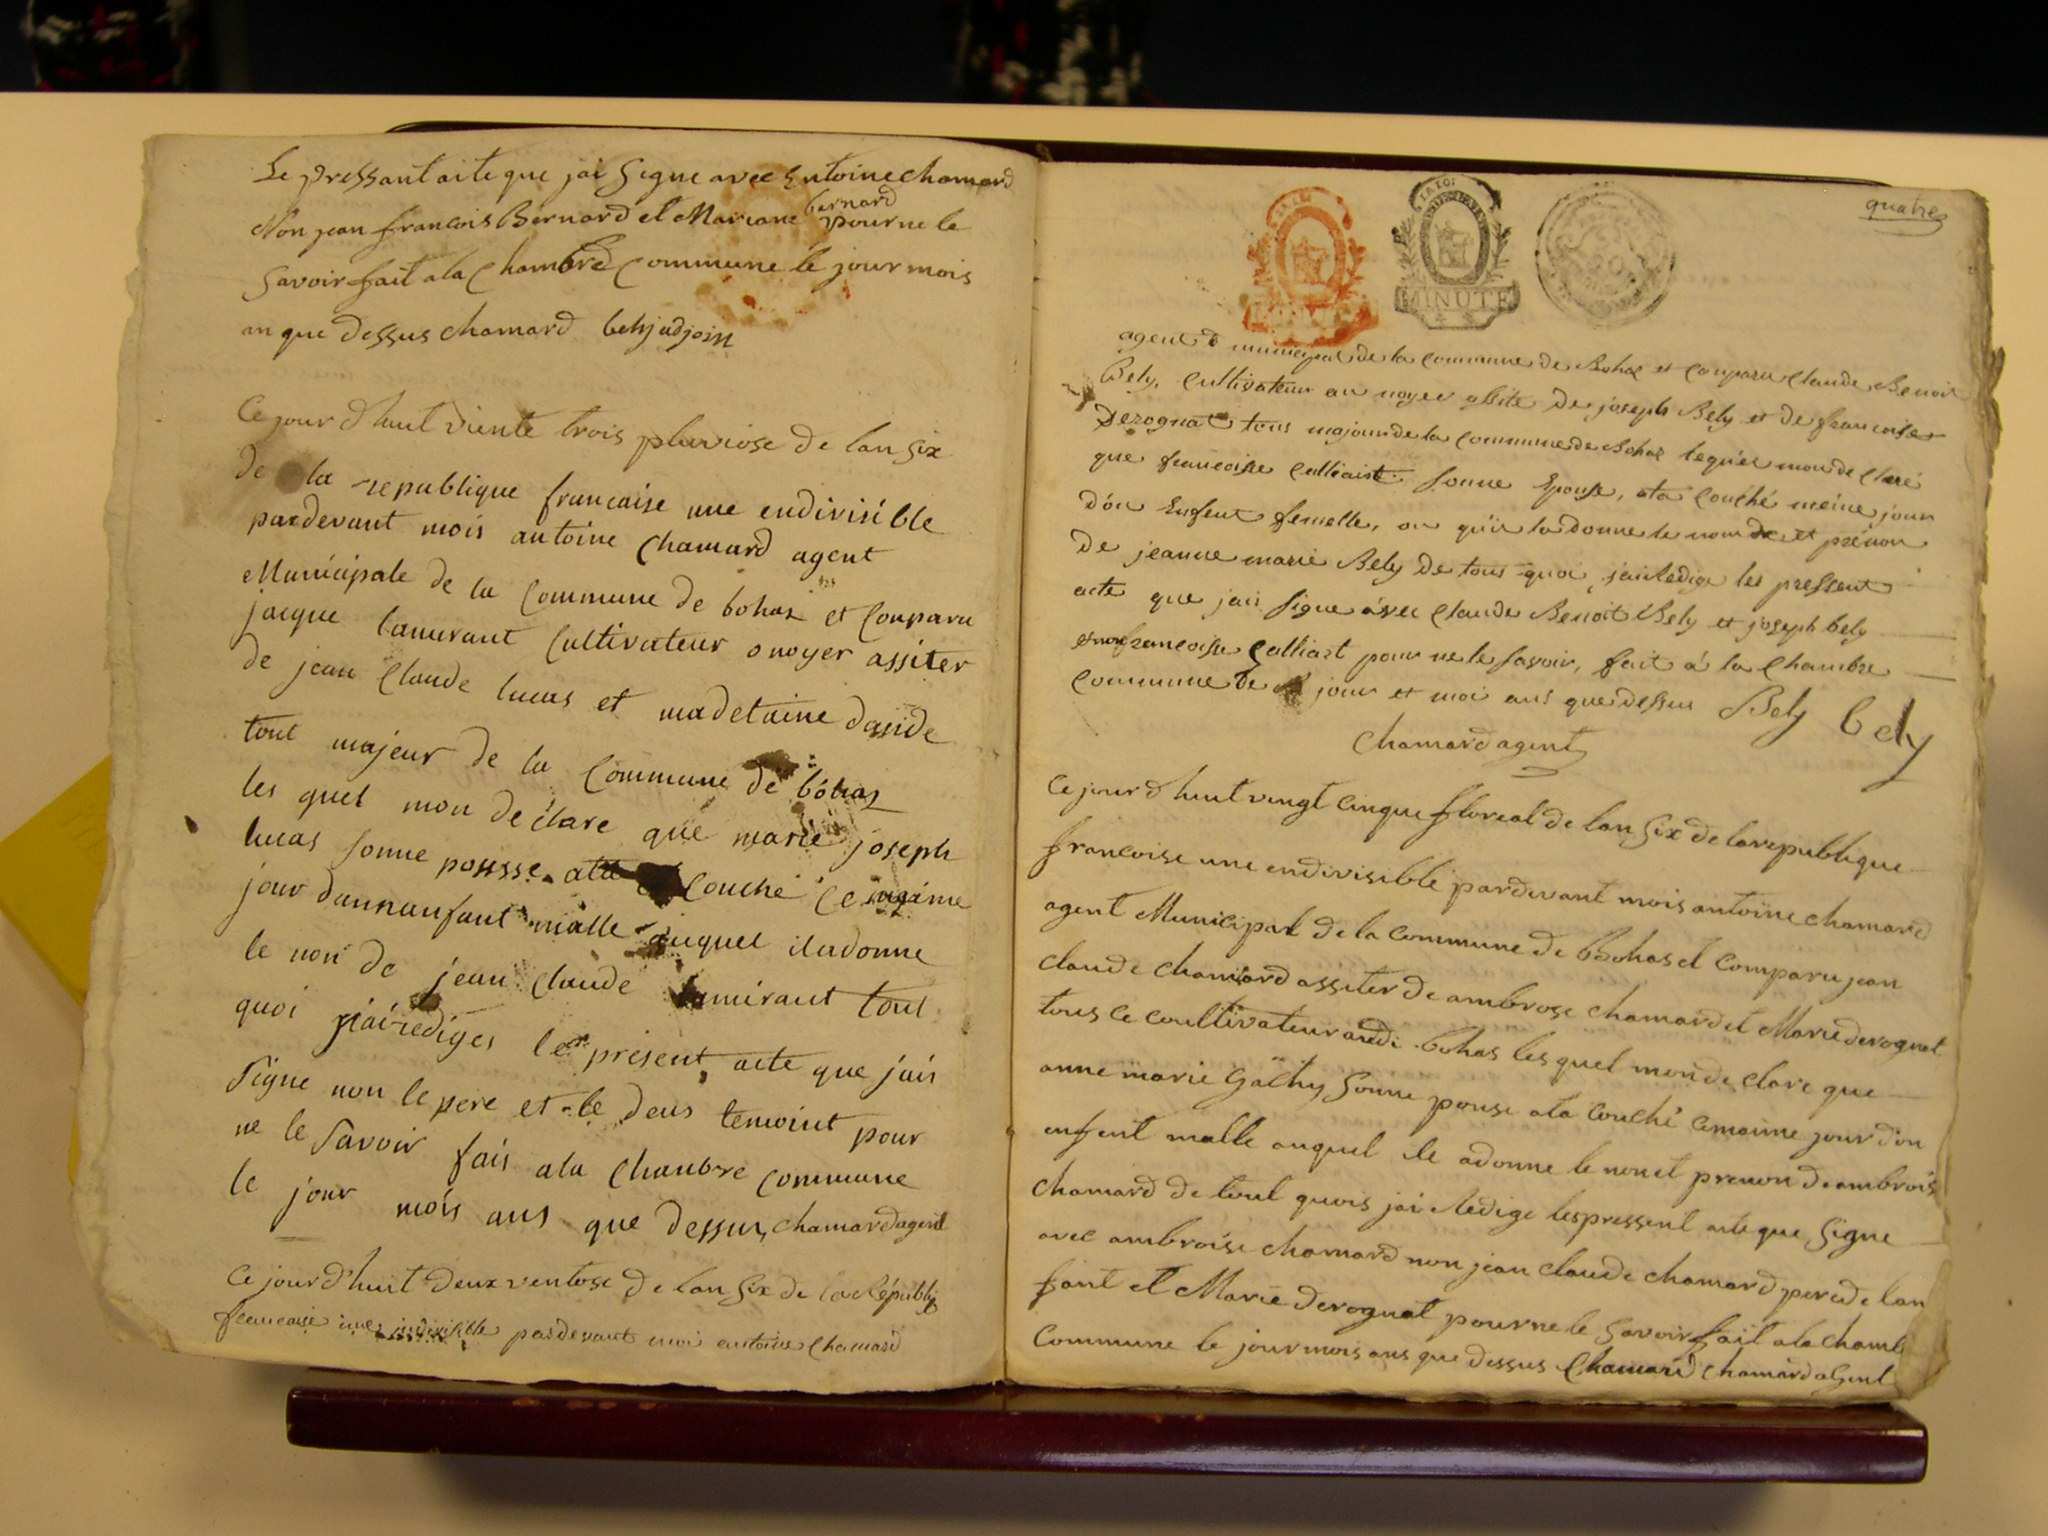 Le pressant aite que jai Signe avec entoine chamard
Non jean francois Bernard et Mariane bernard pour ne le
Savoir fait a la Chambre Commune le jour mois
an que dessus chamard bely adjoin
Ce jour d'huit viente trois pluviose de lan Six
de la republique francaise une endivisible
pardevant mois antoine Chamard agent
Municipale de la Commune de bohas et Conparu
jacque Cultivateur o noyer assiter
de jean Claude lucas et madelaine
tout majeur de la Commune de bohas
les quel mon de clare que marie joseph
lucas sonne pousse ata Couché Ce maime
jour dannanfant malle auquel iladonne
le non de jean Claude tout
quoi jairediges le present acte que jais
signe non le pere et le deus temoint pour
ne le savoir fais ala Chambre Commune
le jour mois ans que dessus, chamard agent
Ce jour d'huit deux ventose de lan Six de la Républiq
francaise une indivisible pardevant moi antoine Chamard
quatre
LA LOI
MINUTE
agent municipal de la Commune de Bohas et Conparu Claude Benoit
Bely, Cultivateur au noyer assité De joseph Bely et de francoise
Derognat tous majour de la Commune de Bohas lequel mon de Claré
que francoise Galliart sonne Epouse, ata Couché meine jour
d'on Enfent femelle, on qu'il la donne le nom de et prénon
De jeanne marie Bely De tous quoi, jai Redige les pressent
acte que jais signe avec Claude Benoit Bely et joseph bely
et non francoise Galliart pour ne le savoir, fait á la Chambre
Commune le jour et moi ans que dessus Bely bely
chamard agent
Ce jour d huit vingt cinque floreal de lan Six de la republique
francoise une endivisible pardevant mois antoine chamard
agent Municipal de la Commune de Bohas et Comparu jean
claude chamard assiter de ambrose chamard et Marie derognat
tous ce coultivateur bohas les quel mon de clare que
anne marie Gathy Sonne pouse ata Couché cemaime jour d'on
enfent malle auquel ile adonne le non et prenon de ambrois
chamard de tout quois jai Redige les pressent aite que Signe
avec ambroise chamard non jean claude chamard pere de lan
fant et Marie derognat pour ne le Savoir fait a la chamb
Commune le jour mois ans que dessus Chamard chamard agent